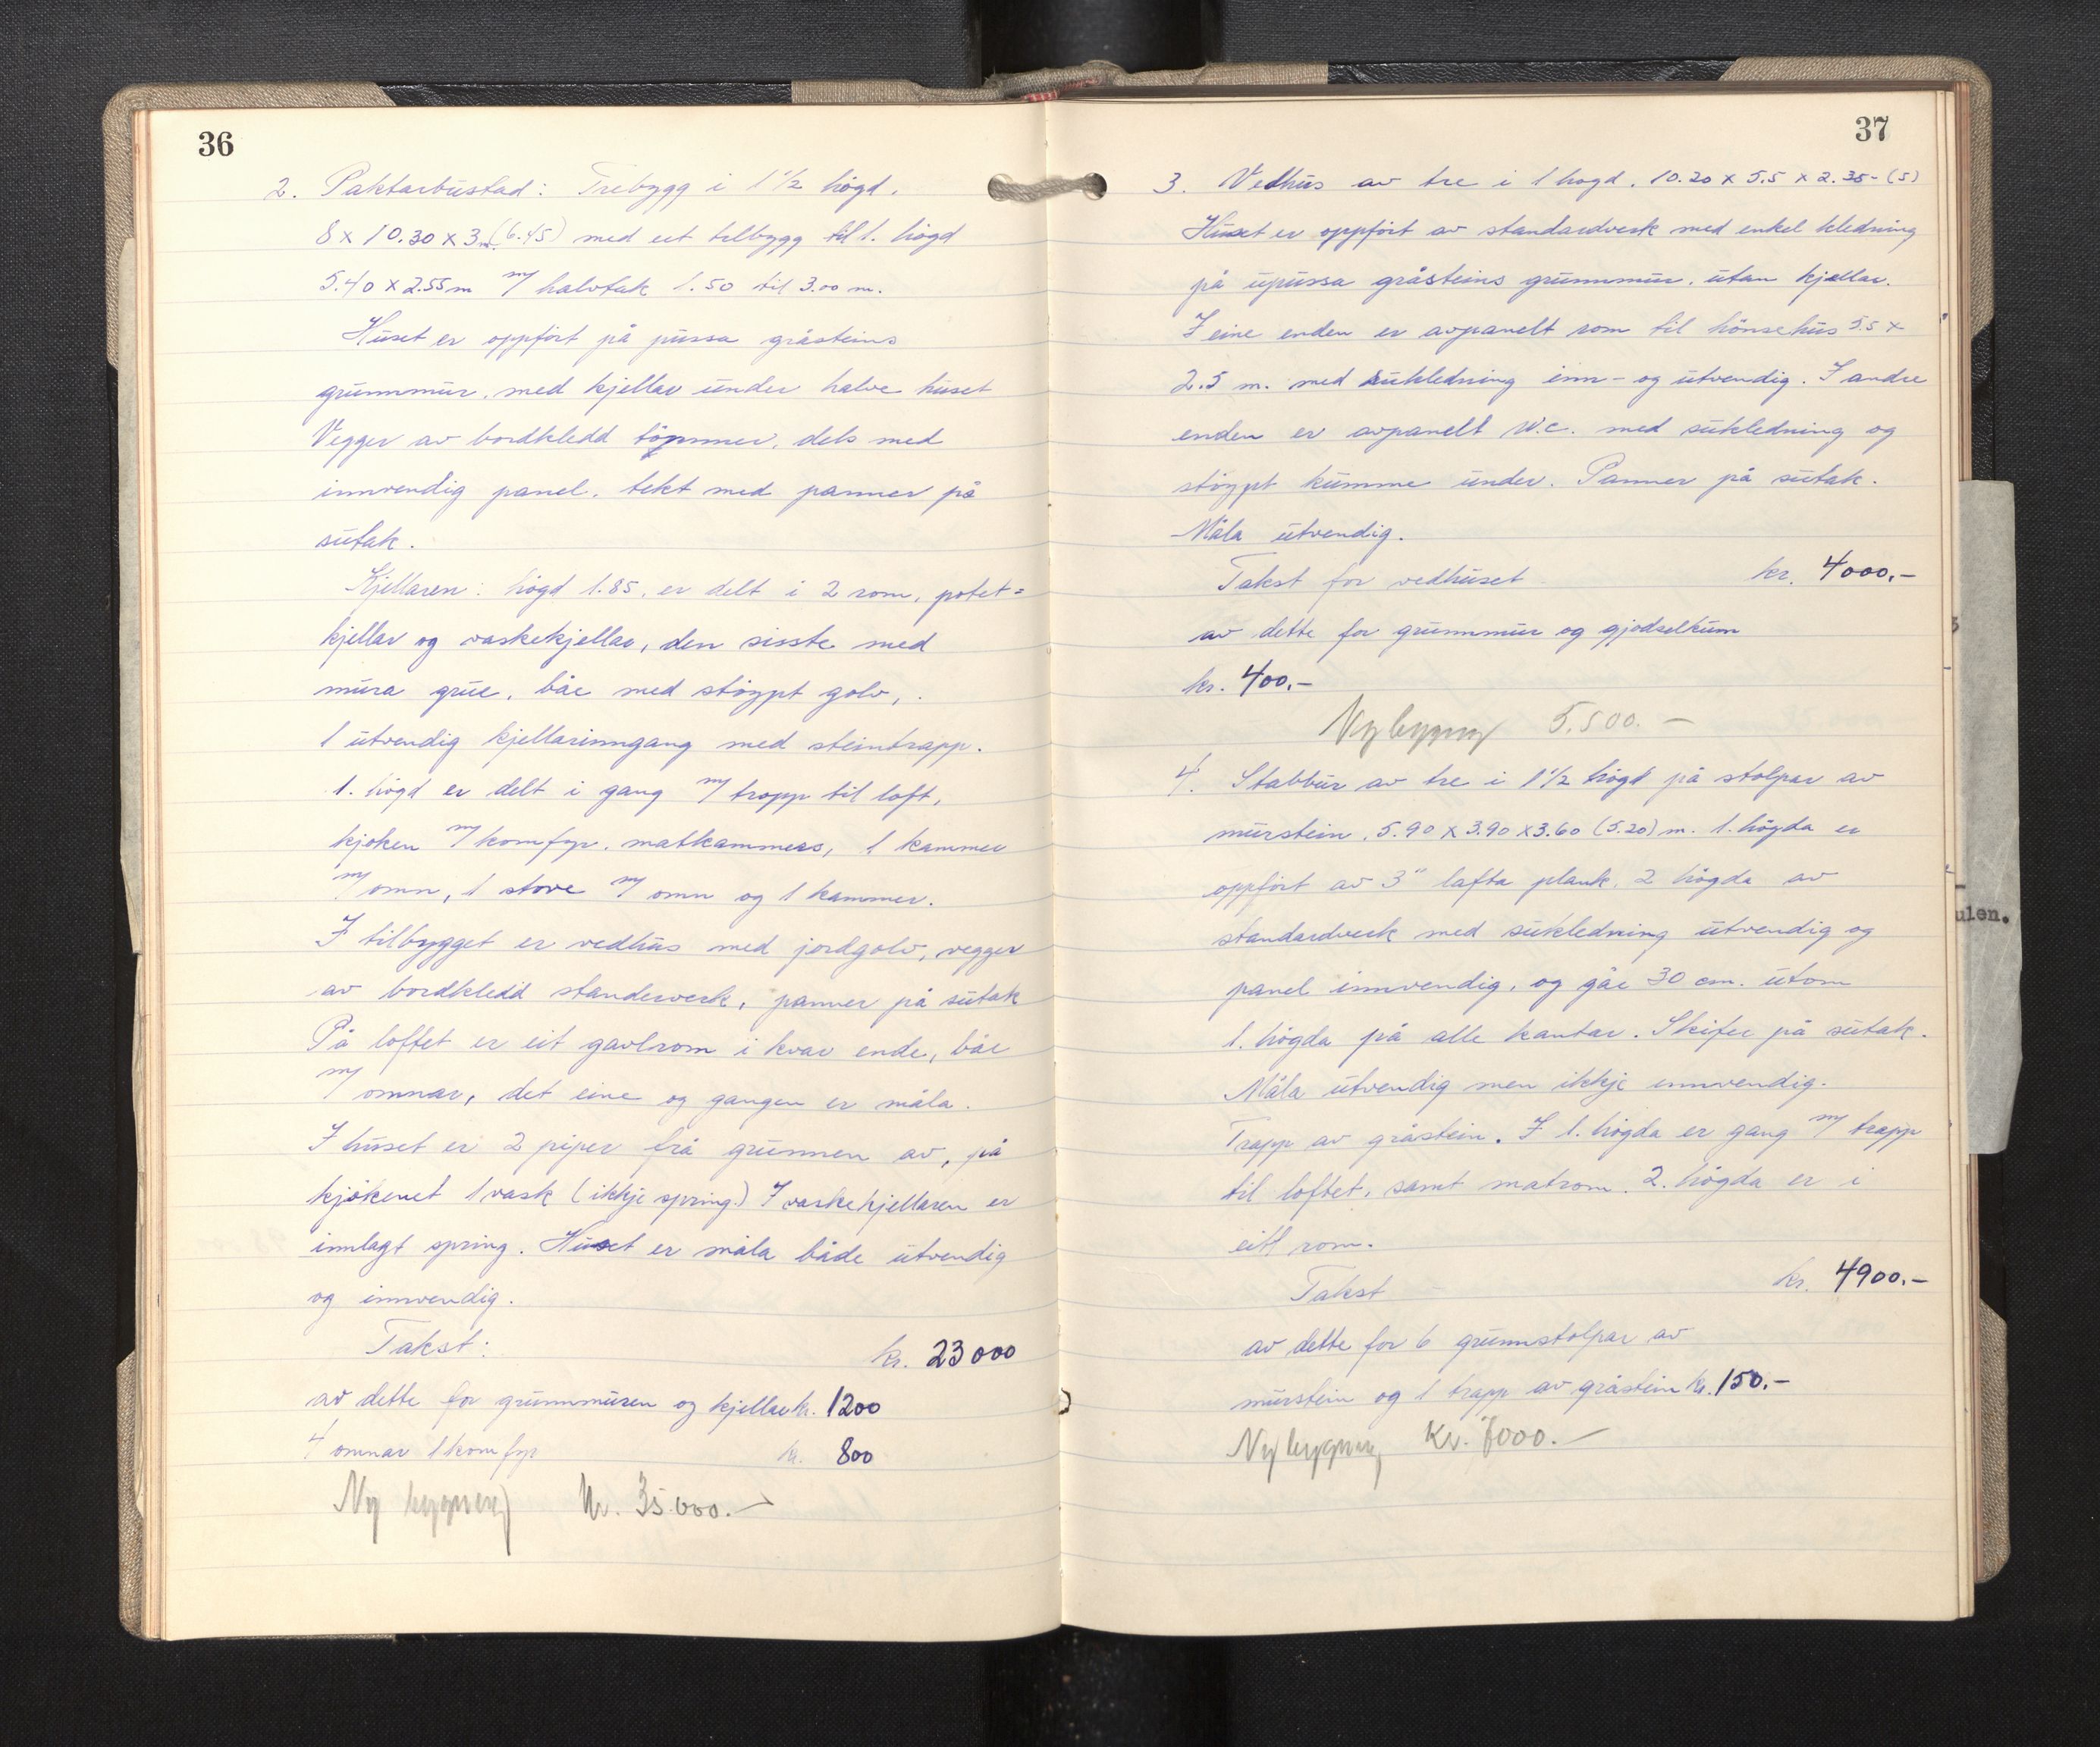 36
2. Paktarbustad: Trebygg i 1 1/2 högd.
8 x 10.30 x 3 m. (6.45) med eit tilbygg til 1. högd
5.40 x 2.55 m m/ halvtak 1.50 til 3.00 m.
Huset er oppfört på pussa gråsteins
grunnmur, med kjellar under halve huset
Vegger av bordkledd tömmer, dels med
innvendig panel, tekt med panner på
sutak.
Kjellaren: högd 1.85, er delt i 2 rom, potet=
kjellar og vaskekjellar, den sisste med
mura grue, båe med stöypt golv,
1 utvendig kjellarinngang med steintrapp.
1. högd er delt i gang m/ tropp til loft,
kjöken m/ komfyr, matkammers, 1 kammer
m/ omn, 1 stove m/ omn og 1 kammer.
I tilbygget er vedhus med jordgolv, vegger
av bordkledd standerverk, panner på sutak
På loftet er eit gavlrom i kvar ende, båe
m/ omnar, det eine og gangen er måla.
I huset er 2 piper frå grunnen av, på
kjökenet 1 vask (ikkje spring.) I vaskekjellaren er
innlagt spring. Huset er måla både utvendig
og innvendig.
Takst: kr. 23000
av dette for grunnmuren og kjellar kr. 1200
4 omnar 1 komfyr kr. 800
Ny bygning Kr. 35.000.-
37
3. Vedhus av tre i 1 högd. 10.20 x 5.5 x 2.35- (5)
Huset er oppfört av standardverk med enkel kledning
på upussa gråsteins grunnmur, utan kjellar.
I eine enden er avpanelt rom til hönsehus 5.5 x
2.5 m. med sukledning inn- og utvendig. I andre
enden er avpanelt W.c. med sukledning og
stöypt kumme under. Panner på sutak.
Måla utvendig.
Takst for vedhuset - kr. 4000.-
av dette for grunnmur og gjödselkum
kr. 400.-
Nybygning 5.500.-
4. Stabbur av tre i 1 1/2 högd på stolpar av
murstein. 5.90 x 3.90 x 3.60 (5.20) m. 1. högda er
oppfört av 3" lafta plank. 2 högda av
standardverk med sukledning utvendig og
panel innvendig, og går 30 cm. utom
1. högda på alle kantar. Skifer på sutak.
Måla utvendig men ikkje innvendig.
Trapp av gråstein. I 1. högda er gang m/ trapp
til loftet, samt matrom. 2. högda er i
eitt rom.
Takst - kr. 4900.-
av dette for 6 grunnstolpar av
murstein og 1 trapp av gråstein kr. 150.-
Nybygning Kr. 7000.-
ulen.